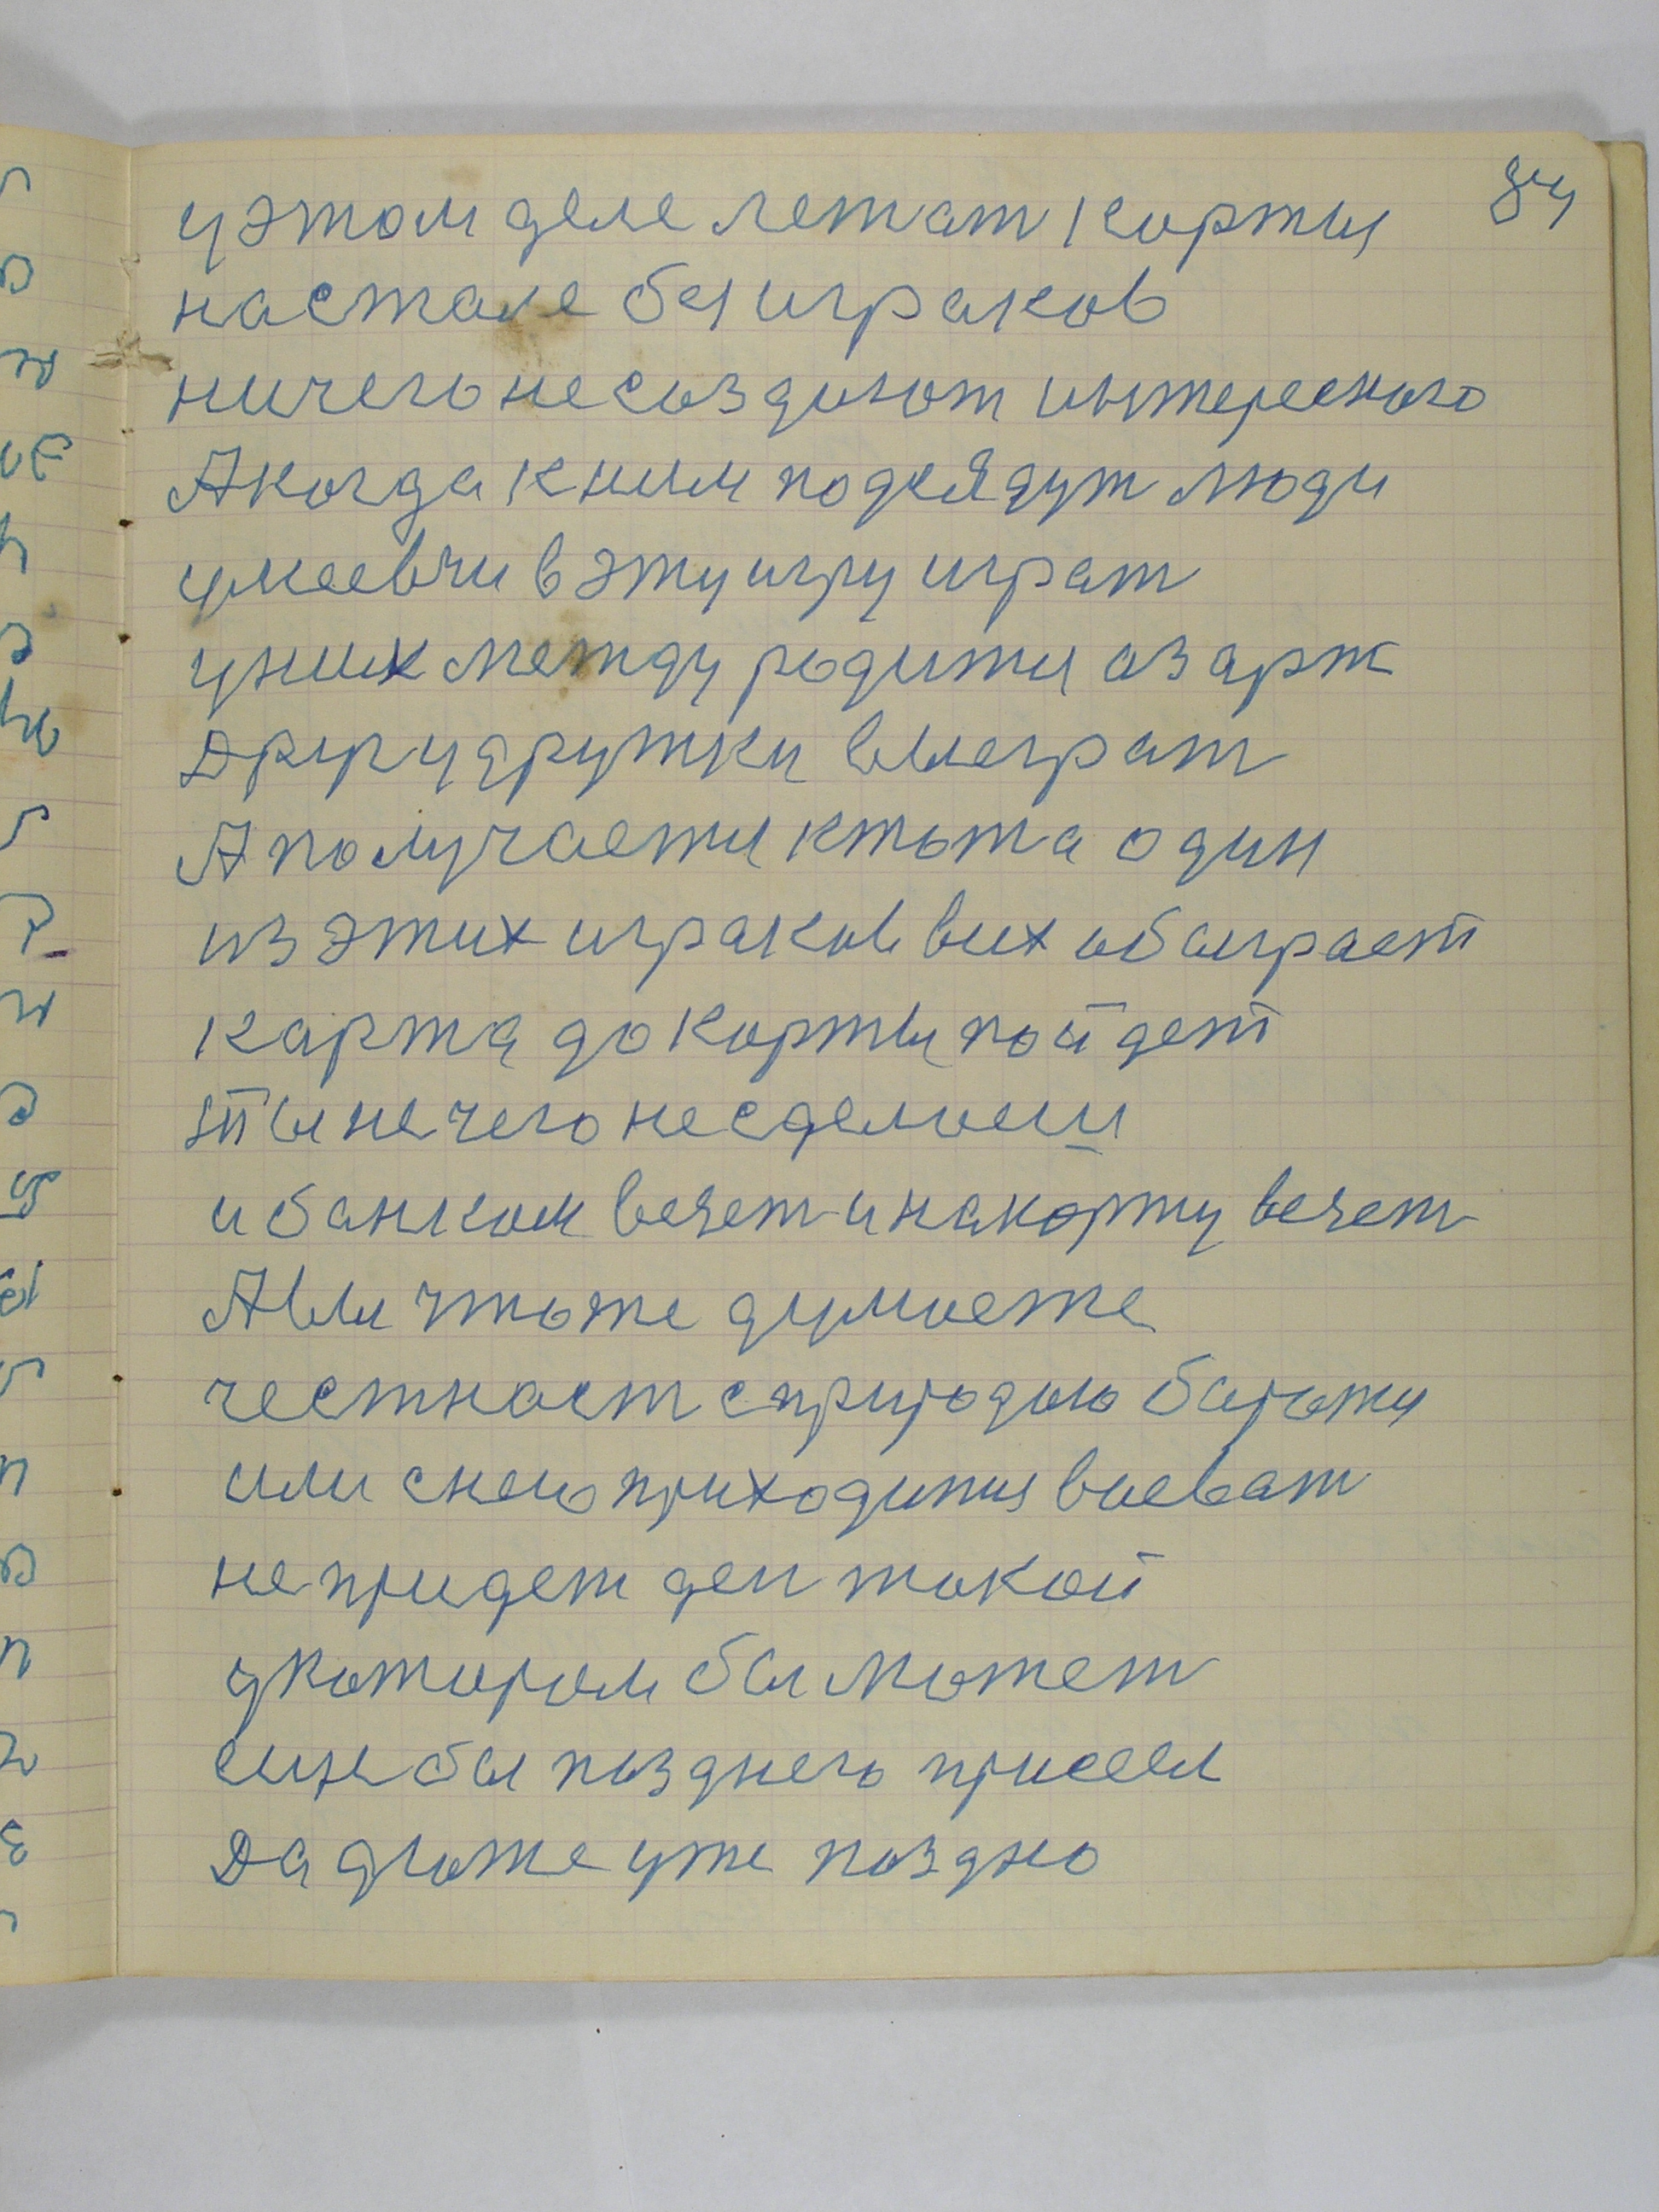 84
у этом деле лежат карты
настале без играков
ничего несоздают интересного
А когда кним подсядут люди
умеевчи в эту игру играт
уних между родитця азарж
Друг у дружки выеграт
А получаетця ктота один
из этих играков вих обаиграет
карта до карты пойдет
ты нечего несделаеш
и банком везет и накарту везет
А вы чтоже думаете
честност сприродою боротця
или снею приходитця воеват
непридет ден такой
укотором бы может
еще бы позднего присел
Да даже уже поздно